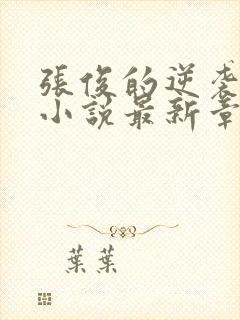 張俊的逆襲
小說最新章
葉葉